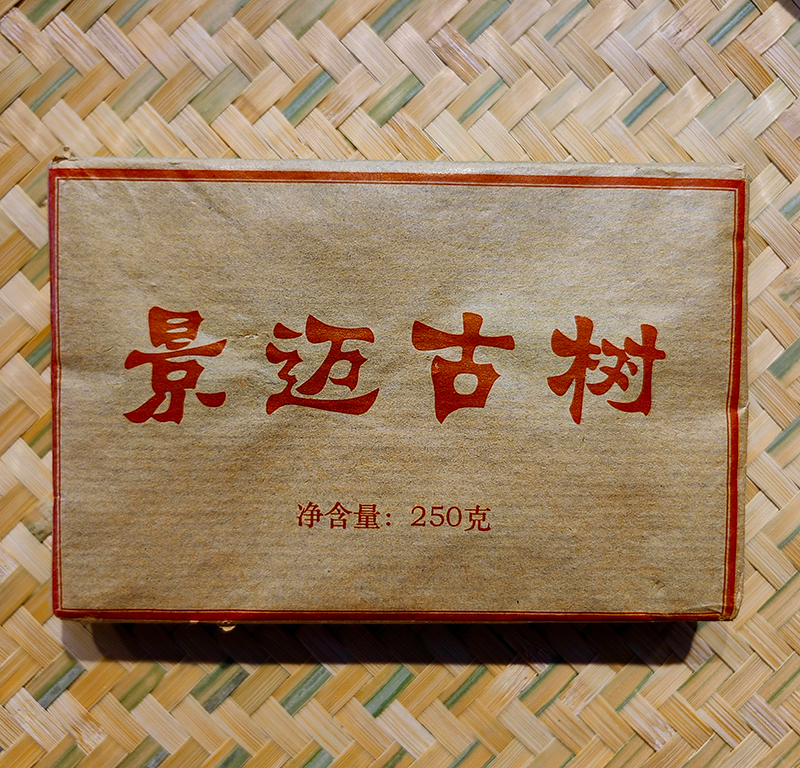 景迈古树
净含量：250克